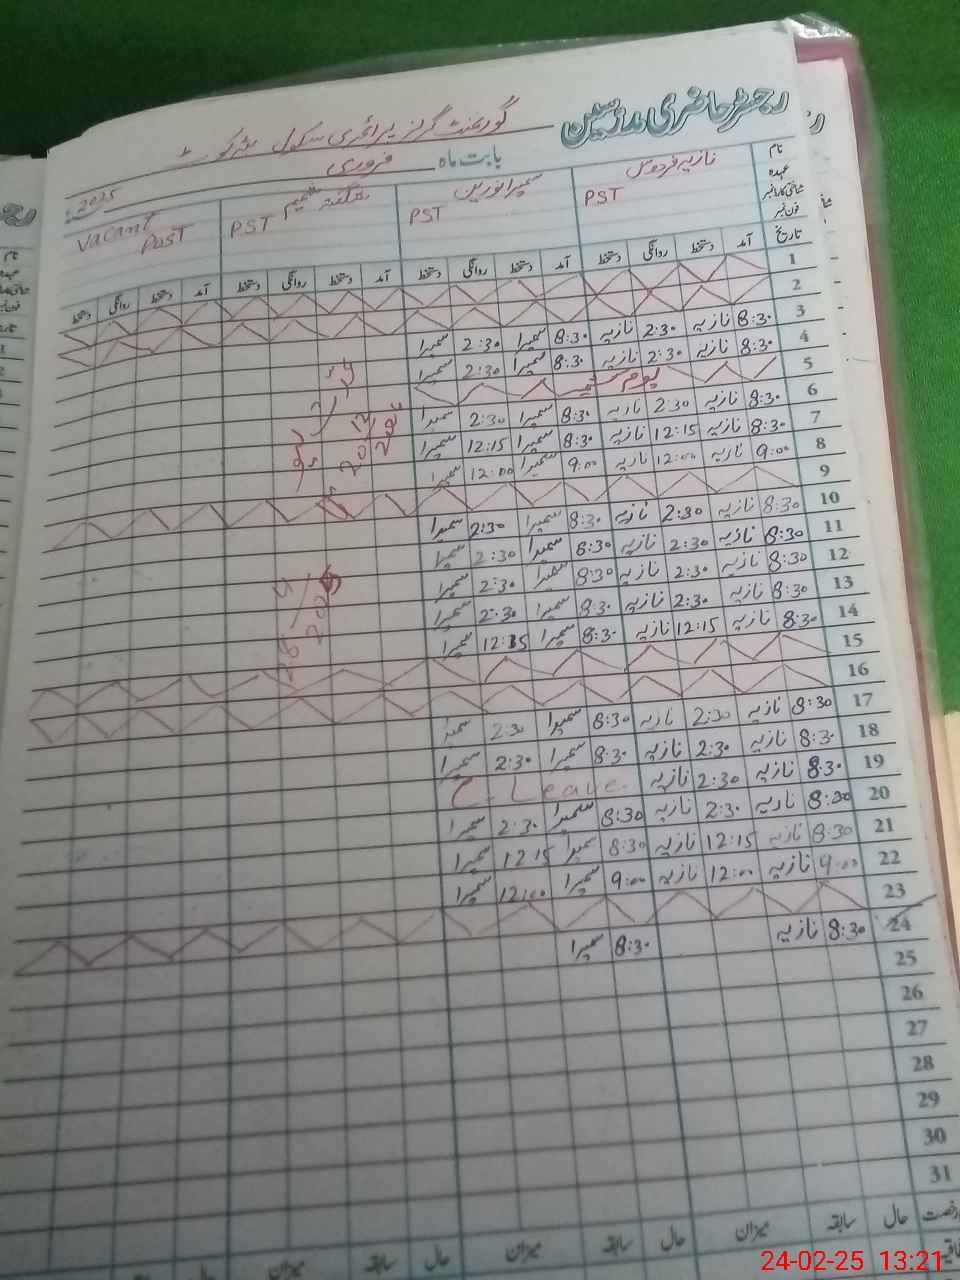 رجسٹر حاضری مدرسین
گورنمنٹ گرلز پرائمری سکول
بابت ماہ فروری 2025
نام نازیہ فردوس سمیرا نورین شگفتہ شمیم Vacant Post
عہدہ PST PST PST
شناختی کارڈ نمبر
فون نمبر
تاریخ آمد دستخط روانگی دستخط آمد دستخط روانگی دستخط آمد دستخط روانگی دستخط آمد دستخط روانگی دستخط
1
2
3 8:30 نازیہ 2:30 نازیہ 8:30 سمیرا 2:30 سمیرا
4 8:30 نازیہ 2:30 نازیہ 8:30 سمیرا 2:30 سمیرا
5 یوم کشمیر
6 8:30 نازیہ 2:30 نازیہ 8:30 سمیرا 2:30 سمیرا
7 8:30 نازیہ 12:15 نازیہ 8:30 سمیرا 12:15 سمیرا
8 9:00 نازیہ 12:00 نازیہ 9:00 سمیرا 12:00 سمیرا
9
10 8:30 نازیہ 2:30 نازیہ 8:30 سمیرا 2:30 سمیرا
11 8:30 نازیہ 2:30 نازیہ 8:30 سمیرا 2:30 سمیرا
12 8:30 نازیہ 2:30 نازیہ 8:30 سمیرا 2:30 سمیرا
13 8:30 نازیہ 2:30 نازیہ 8:30 سمیرا 2:30 سمیرا
14 8:30 نازیہ 12:15 نازیہ 8:30 سمیرا 12:15 سمیرا
15
16
17 8:30 نازیہ 2:30 نازیہ 8:30 سمیرا 2:30 سمیرا
18 8:30 نازیہ 2:30 نازیہ 8:30 سمیرا 2:30 سمیرا
19 8:30 نازیہ 2:30 نازیہ C. Leave
20 8:30 نازیہ 2:30 نازیہ 8:30 سمیرا 2:30 سمیرا
21 8:30 نازیہ 12:15 نازیہ 8:30 سمیرا 12:15 سمیرا
22 9:00 نازیہ 12:00 نازیہ 9:00 سمیرا 12:00 سمیرا
23
24 8:30 نازیہ 8:30 سمیرا
25
26
27
28
29
30
31
رخصت حال سابقہ میزان حال سابقہ میزان حال سابقہ میزان حال سابقہ
24-02-25 13:21